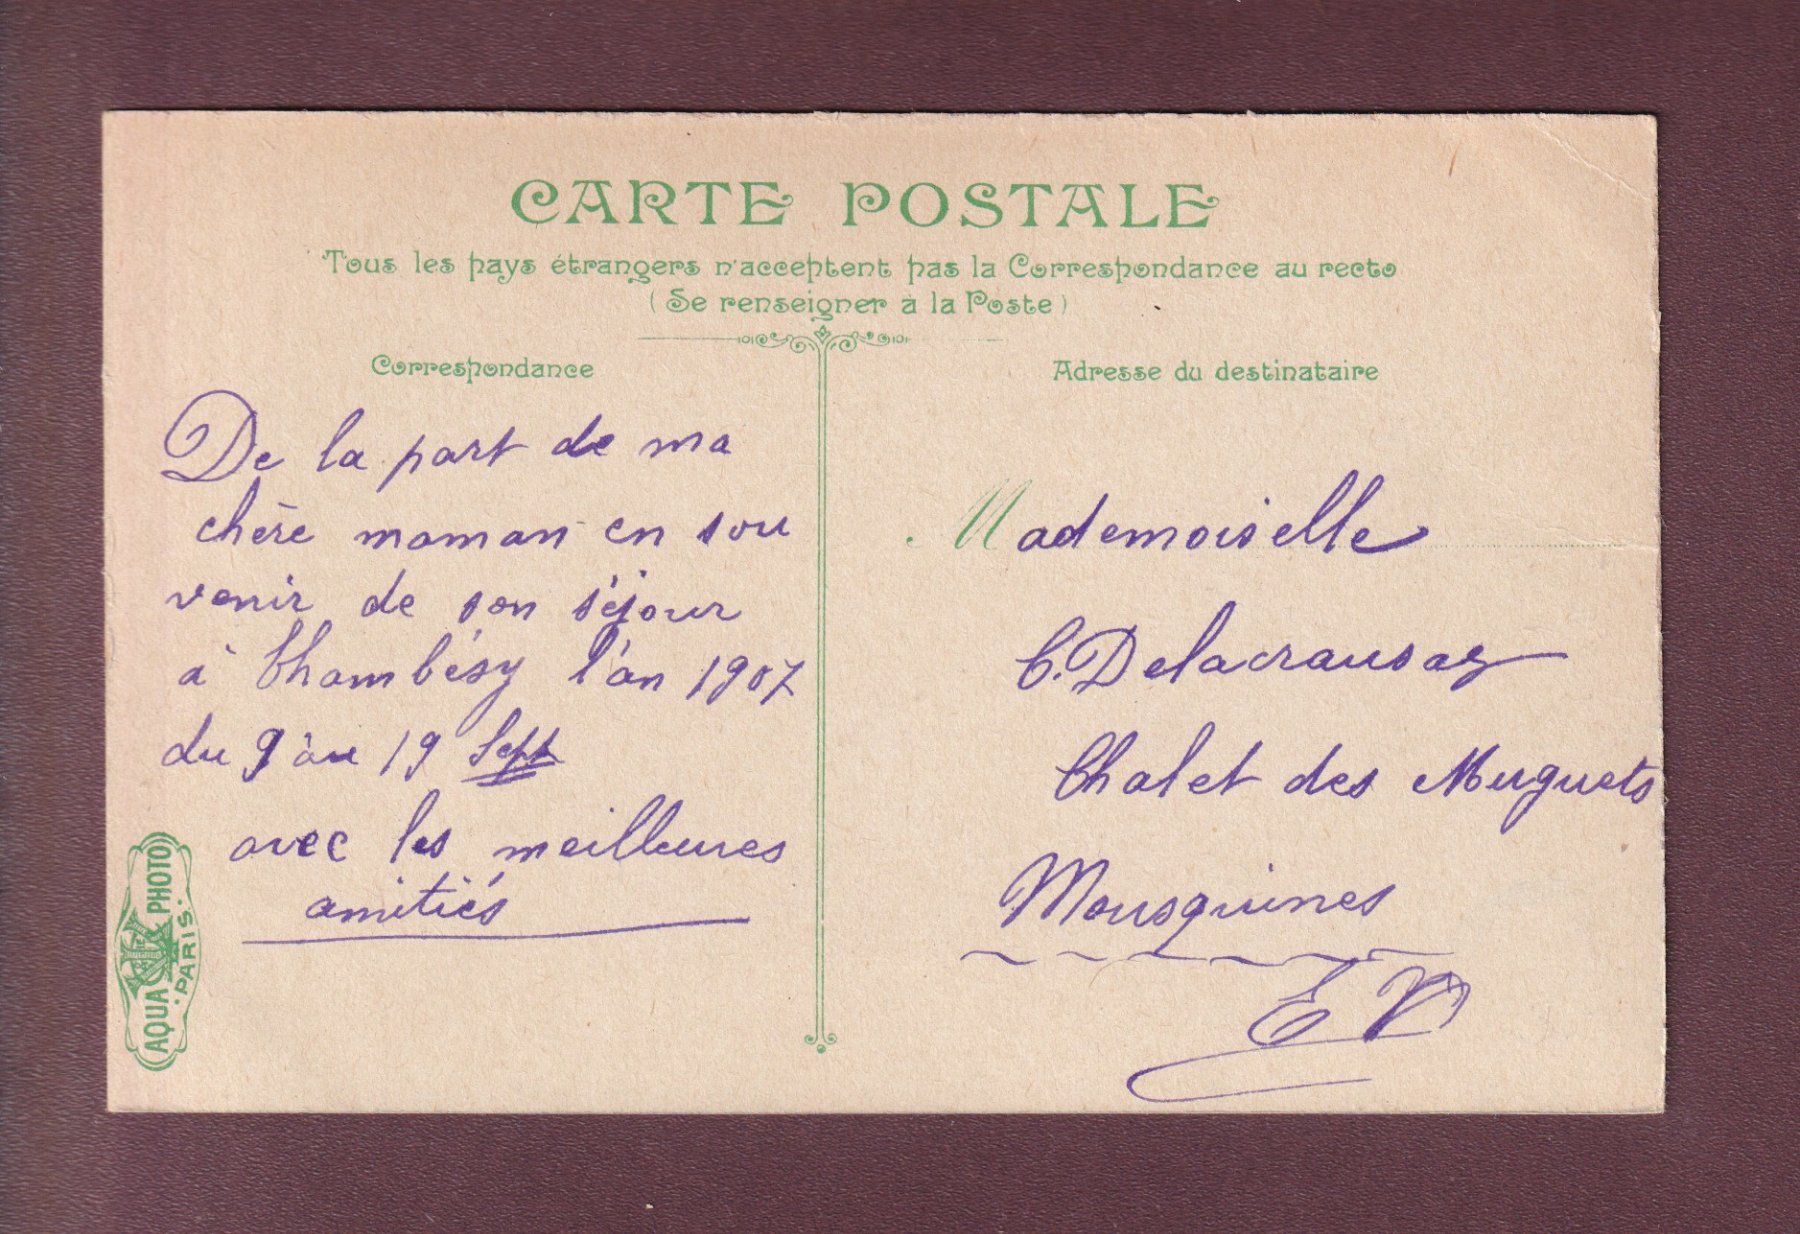 CARTE POSTALE
Tous les pays étrangers n'acceptent pas la Correspondance au recto
(Se renseigner à la Poste)
Correspondance
Adresse du destinataire
De la part de ma
chère maman en sou
venir de son séjour
à Chambésy l'an 1907
du 9 au 19 Sept
avec les meilleures
amitiés
Mademoiselle
C. Delacrausaz
Chalet des Muguets
Mousquines
E V
AQUA PHOTO
PARIS